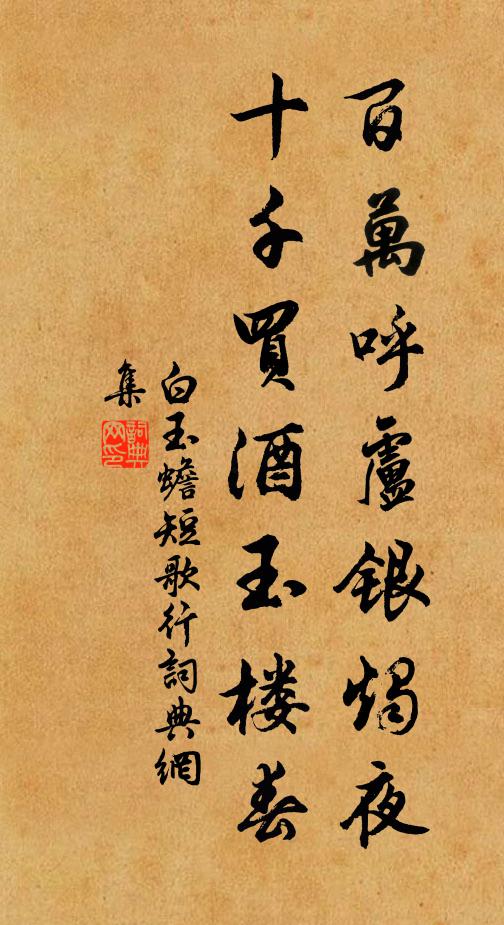 百萬呼盧銀燭夜
十千買酒玉樓春
白玉蟾短歌行詞典網
集
詞典
网印